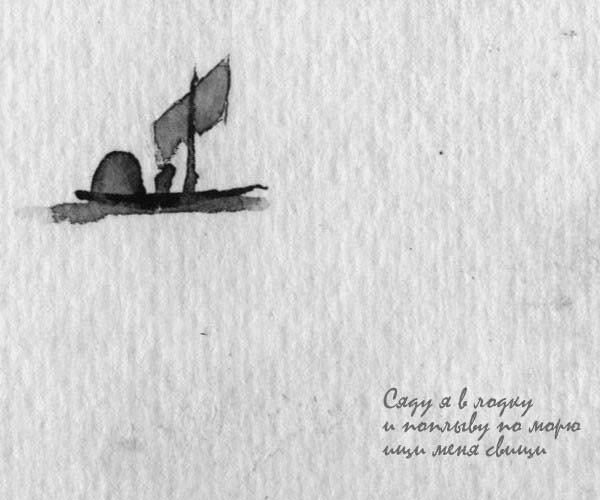 Сяду я в лодку
и поплыву по морю
ищи меня свищи